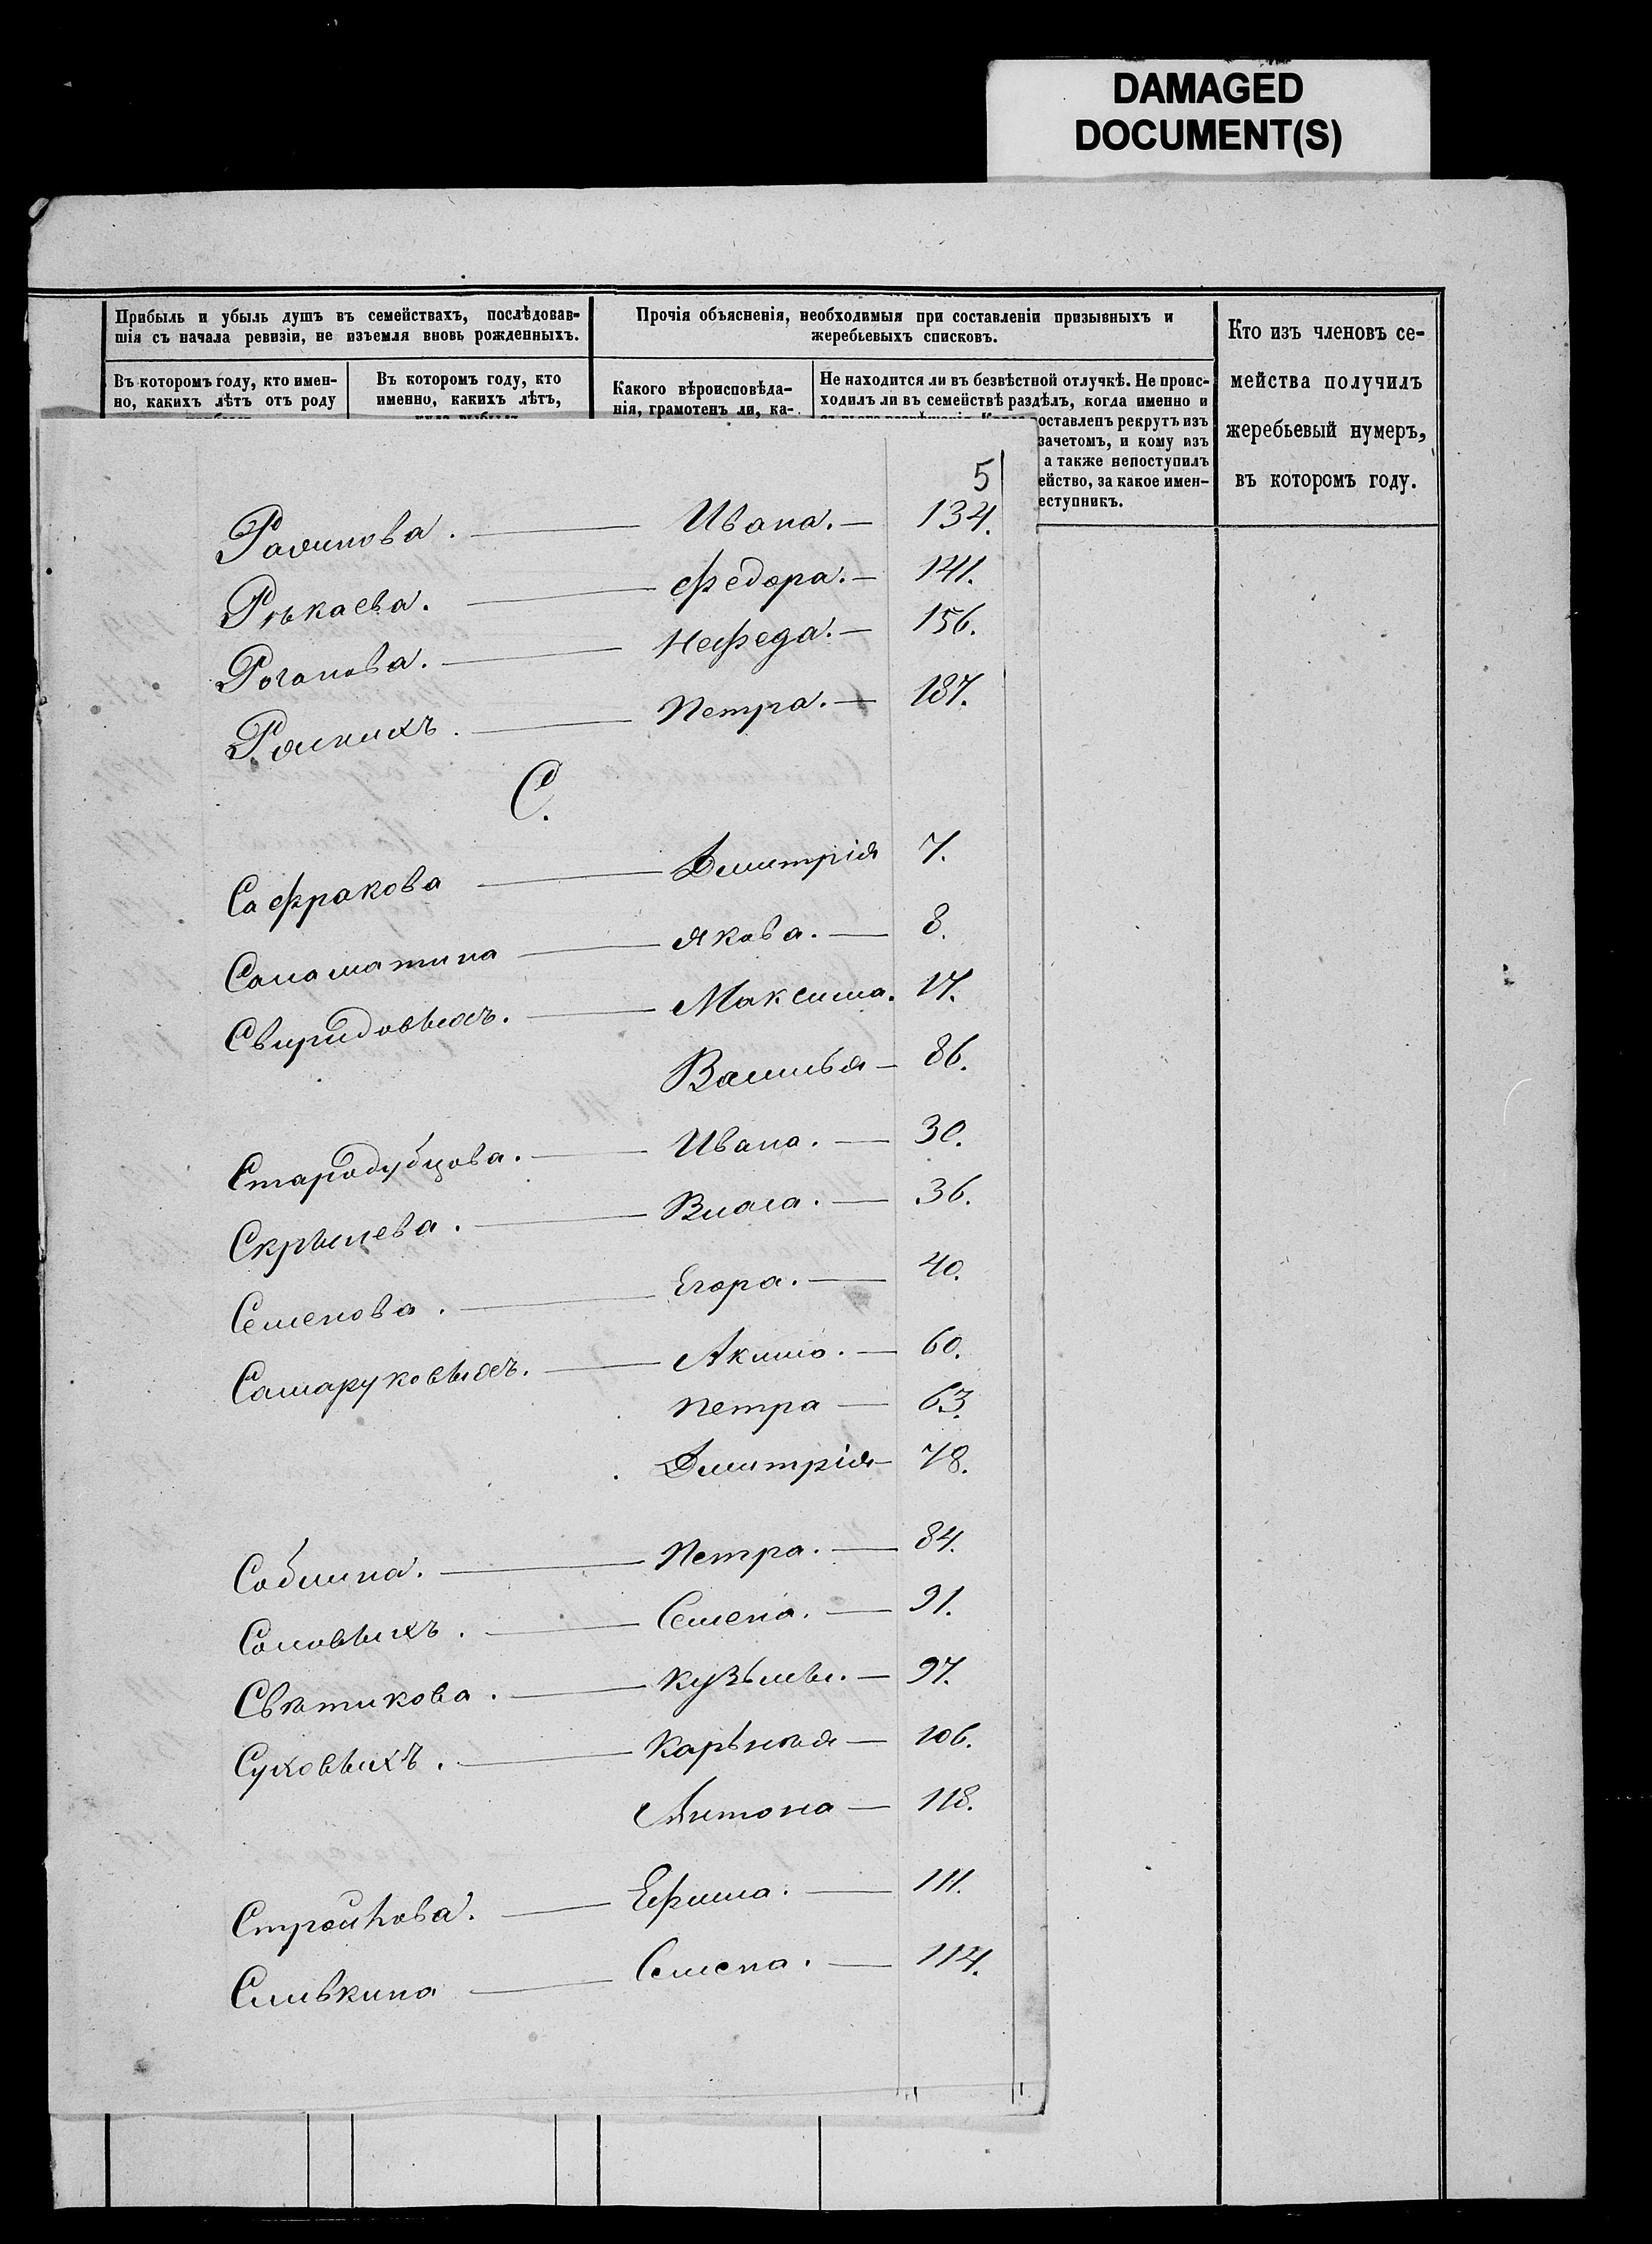 DAMAGED
DOCUMENT(S)
Прибыль и убыль душъ въ семействахъ, послѣдовав-
шія съ начала ревизіи, не изъемля вновь рожденныхъ.
Прочія объясненія, необходимыя при составленіи призывныхъ и
жеребьевыхъ списковъ.
Кто изъ членовъ се-
мейства получилъ
жеребьевый нумеръ,
въ которомъ году.
Въ которомъ году, кто имен-
но, какихъ лѣтъ отъ роду
Въ которомъ году, кто
именно, какихъ лѣтъ,
Какого вѣроисповѣда-
нія, грамотенъ ли, ка-
Не находится ли въ безвѣстной отлучкѣ. Не проис-
ходилъ ли въ семействѣ раздѣлъ, когда именно и
оставленъ рекрутъ изъ
зачетомъ, и кому изъ
а также непоступилъ
ейство, за какое имен-
еступникъ.
5
Ивана. — 134.
Рѣкаева. — Федора. — 141.
Роганова. — Нефеда. — 156.
Петра. — 187.
С.
Сафракова — Дмитрія 7.
Саломатина — Якова. — 8.
Свиридовыхъ. — Максима. 17.
Василья — 86.
Стародубцова. — Ивана. — 30.
Скрылева. — Власа. — 36.
Семенова. — Егора. — 40.
Самаруковыхъ. — Акима. — 60.
Петра — 63.
Дмитрія — 78.
Собмина. — Петра. — 84.
Соловыхъ. — Семена. — 91.
Свѣтикова. — Кузьмы. — 97.
Суховыхъ. — Карпъя — 106.
Антона — 118.
Стройкова. — Ефима. — 111.
Сливкина — Семена. — 114.